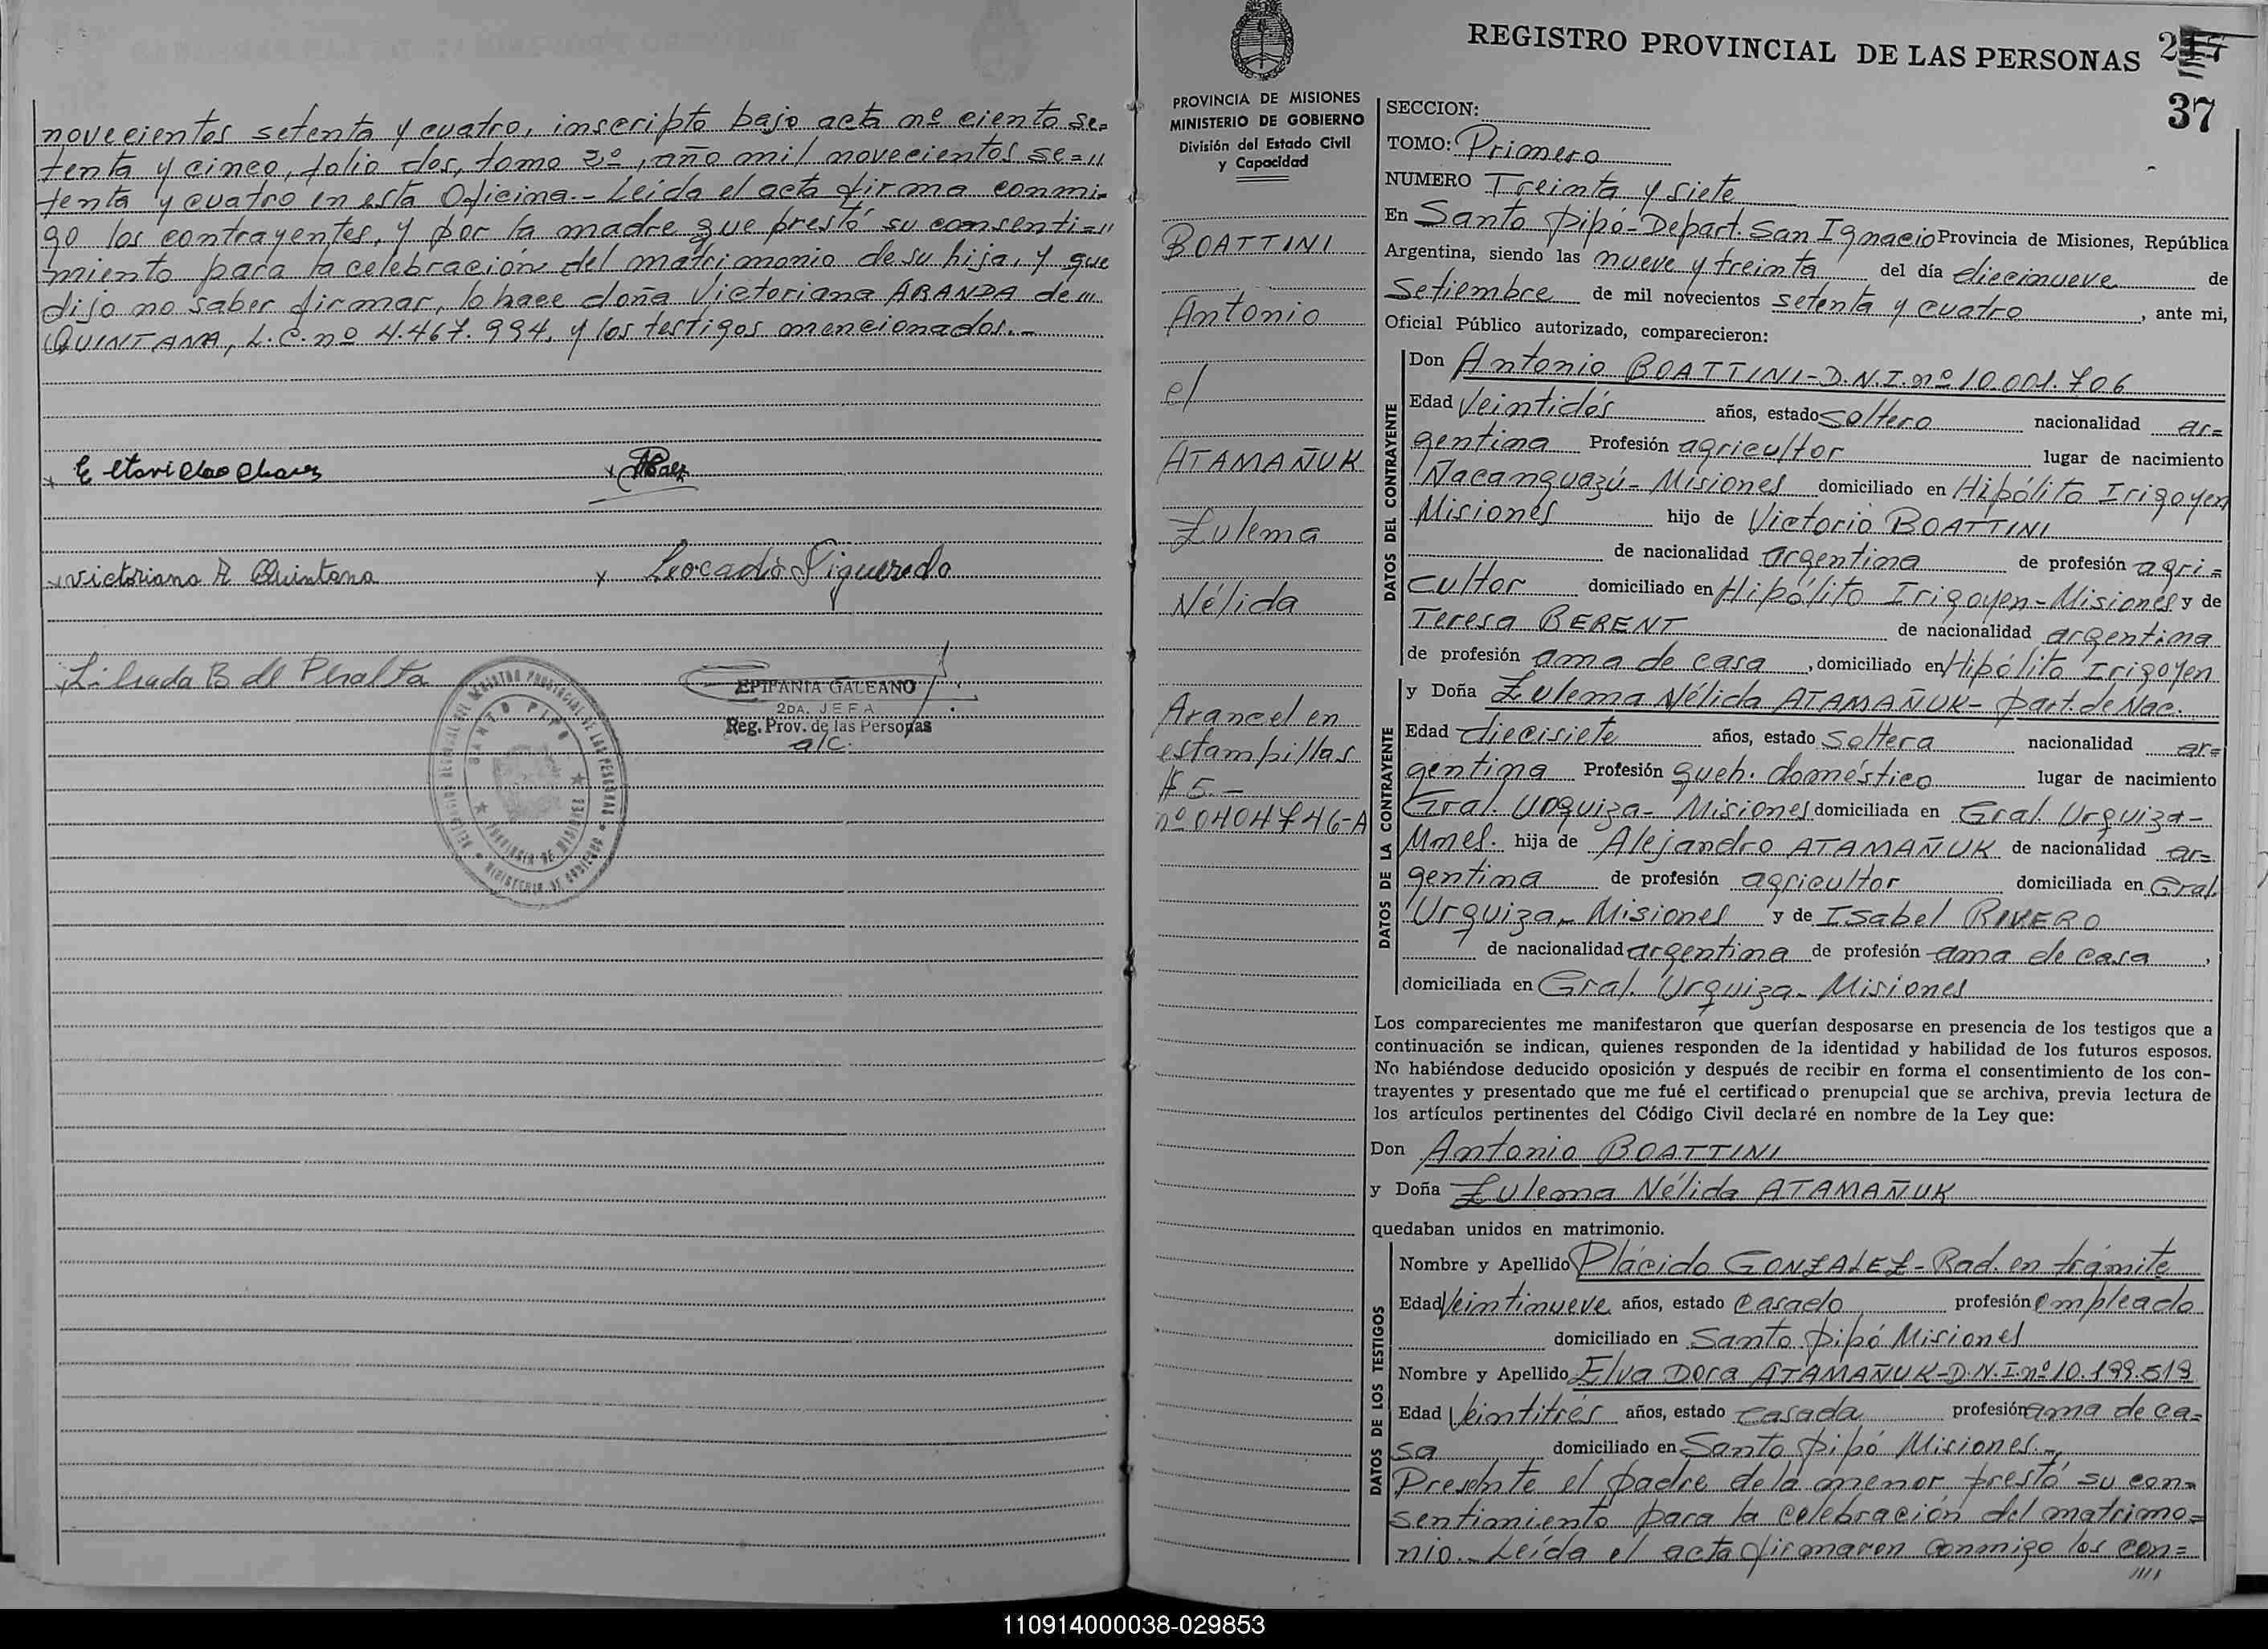 novecientos setenta y cuatro, inscripto bajo acta nº ciento se=
tenta y cinco, folio dos, tomo 2º, año mil novecientos se="
tenta y cuatro en esta Oficina.- Leída el acta firma conmi-
go los contrayentes, y por la madre que prestó su consenti="
miento para la celebración del matrimonio de su hija, y que
dijo no saber firmar, lo hace doña Victoriana ARANDA de
QUINTANA, L.C. nº 4.467.994, y los testigos mencionados.-
Victoriana A Quintana
x Leocadio Figueredo
Librada B de Peralta
EPIFANIA GALEANO
2DA. JEFA
Reg. Prov. de las Personas
a/c.
REGISTRO PROVINCIAL DE LAS PERSONAS
37
PROVINCIA DE MISIONES
MINISTERIO DE GOBIERNO
División del Estado Civil
y Capacidad
BOATTINI
Antonio
el
ATAMAÑUK
Zulema
Nélida
Arancel en
estampillas
$ 5.-
nº 0404746-A
SECCION:
TOMO: Primero
NUMERO Treinta y siete
En Santo Pipó-Depart. San Ignacio Provincia de Misiones, República
Argentina, siendo las nueve y treinta del día diecinueve de
Setiembre de mil novecientos setenta y cuatro, ante mi,
Oficial Público autorizado, comparecieron:
DATOS DEL CONTRAYENTE
Don Antonio BOATTINI-D.N.I. nº 10.001.706
Edad Veintidós años, estado soltero nacionalidad ar=
gentina Profesión agricultor lugar de nacimiento
Ñacanguazú-Misiones domiciliado en Hipólito Irigoyen
Misiones hijo de Victorio BOATTINI
de nacionalidad argentina de profesión agri=
cultor domiciliado en Hipólito Irigoyen-Misiones y de
Teresa BERENT de nacionalidad argentina
de profesión ama de casa, domiciliado en Hipólito Irigoyen
DATOS DE LA CONTRAYENTE
y Doña Zulema Nélida ATAMAÑUK- Part. de Nac.
Edad diecisiete años, estado Soltera nacionalidad ar=
gentina Profesión queh. doméstico lugar de nacimiento
Gral. Urquiza- Misiones domiciliada en Gral. Urquiza-
Mnes. hija de Alejandro ATAMAÑUK de nacionalidad ar=
gentina de profesión agricultor domiciliada en Gral.
Urquiza- Misiones y de Isabel RIVERO
de nacionalidad argentina de profesión ama de casa,
domiciliada en Gral. Urquiza- Misiones
Los comparecientes me manifestaron que querían desposarse en presencia de los testigos que a
continuación se indican, quienes responden de la identidad y habilidad de los futuros esposos.
No habiéndose deducido oposición y después de recibir en forma el consentimiento de los con-
trayentes y presentado que me fué el certificado prenupcial que se archiva, previa lectura de
los artículos pertinentes del Código Civil declaré en nombre de la Ley que:
Don Antonio BOATTINI
y Doña Zulema Nélida ATAMAÑUK
quedaban unidos en matrimonio.
DATOS DE LOS TESTIGOS
Nombre y Apellido Plácido GONZALEZ- Rad. en trámite
Edad Veintinueve años, estado casado profesión empleado
domiciliado en Santo Pipó Misiones
Nombre y Apellido Elva Dora ATAMAÑUK-D.N.I. nº 10.199.519
Edad Veintitrés años, estado casada profesión ama de ca=
sa domiciliado en Santo Pipó Misiones.-
Presente el padre de la menor prestó su con=
sentimiento para la celebración del matrimo=
nio.- Leída el acta firmaron conmigo los con=
////
110914000038-029853